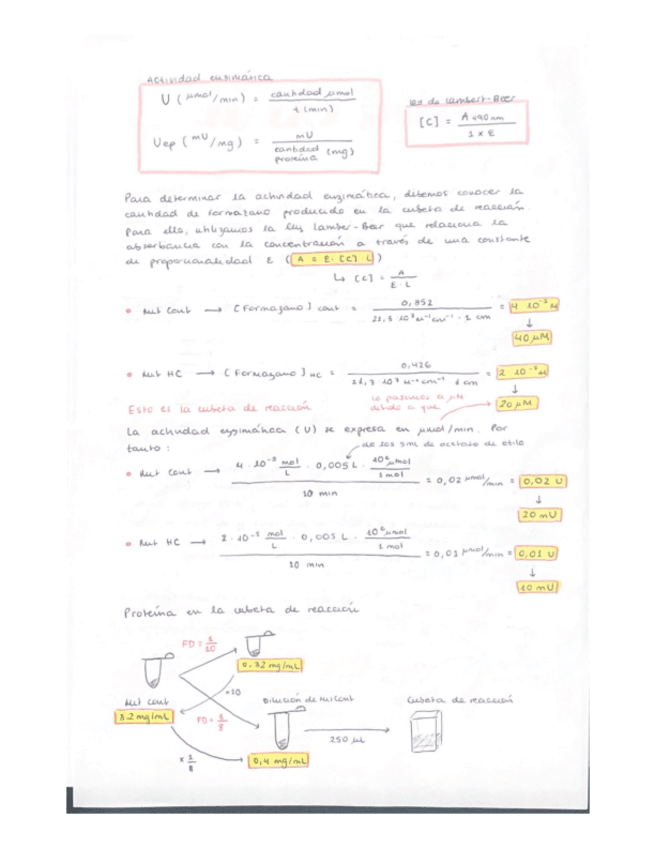 Actividad enzimática
U (μmol/min) = cantidad μmol / t (min)
Uep (mU/mg) = mU / cantidad proteína (mg)
Ley de Lambert-Beer
[C] = A 490 nm / 1 x ε
Para determinar la actividad enzimática, debemos conocer la
cantidad de formazano producido en la cubeta de reacción.
Para ello, utilizamos la ley Lamber-Beer que relaciona la
absorbancia con la concentración a través de una constante
de proporcionalidad ε (A = ε · [C] · L)
↳ [C] = A / ε · L
• Mit Cont → [Formazano] cont = 0,852 / 21,3 · 10³ M⁻¹ cm⁻¹ · 1 cm = 4 · 10⁻⁵ M
↓
40 μM
• Mit HC → [Formazano] HC = 0,426 / 21,3 · 10³ M⁻¹ cm⁻¹ · 1 cm = 2 · 10⁻⁵ M
↓
Esto es la cubeta de reacción
lo pasamos a μM
debido a que
20 μM
La actividad enzimática (U) se expresa en μmol/min. Por
tanto:
de los 5mL de acetato de etilo
• Mit Cont → 4 · 10⁻⁵ mol/L · 0,005 L · 10⁶ μmol / 1 mol / 10 min = 0,02 μmol/min = 0,02 U
↓
20 mU
• Mit HC → 2 · 10⁻⁵ mol/L · 0,005 L · 10⁶ μmol / 1 mol / 10 min = 0,01 μmol/min = 0,01 U
↓
10 mU
Proteína en la cubeta de reacción
FD = 1/10
0,32 mg/mL
x10
Mit Cont
3.2 mg/mL
FD = 1/8
Dilución de Mit Cont
Cubeta de reacción
250 μL
x 1/8
0,4 mg/mL